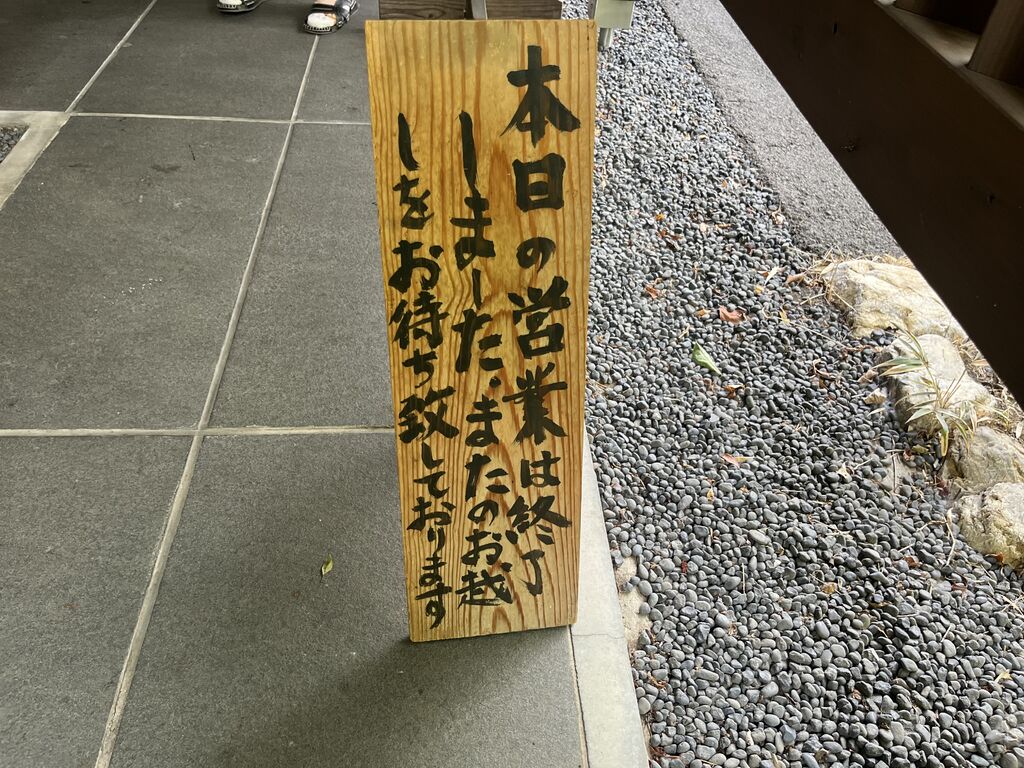 本日の営業は終了
しました。またのお越
しをお待ち致しております